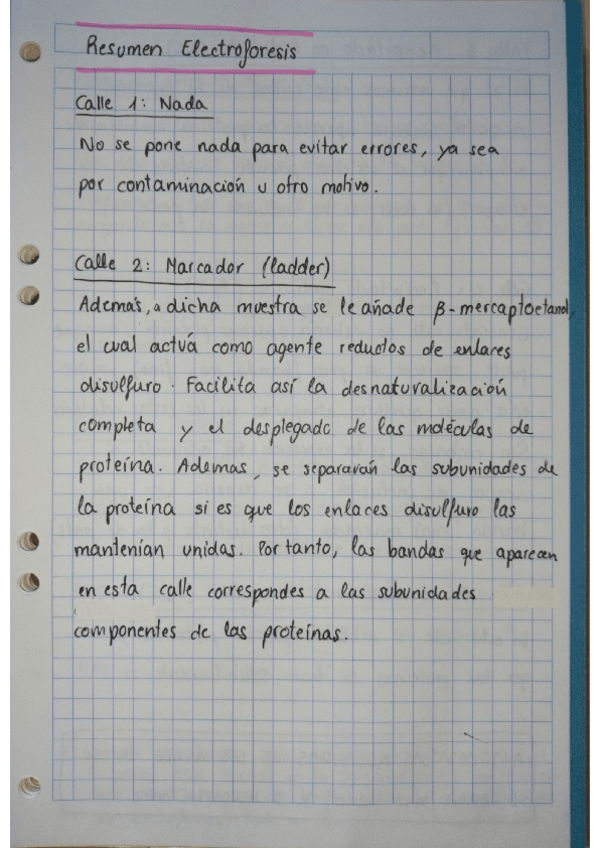 Resumen Electroforesis
Calle 1: Nada
No se pone nada para evitar errores, ya sea
por contaminación u otro motivo.
Calle 2: Marcador (ladder)
Además, a dicha muestra se le añade β-mercaptoetanol,
el cual actuá como agente reductos de enlares
disulfuro. Facilita así la desnaturalización
completa y el desplegado de las moléculas de
proteína. Ademas, se separaván las subunidades de
la proteína si es que los enlaces disulfuro las
mantenían unidas. Por tanto, las bandas que aparecen
en esta calle correspondes a las subunidades
componentes de las proteínas.